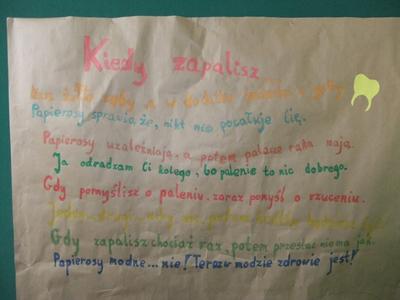 Kiedy zapalisz
masz żółte zęby a w dodatku
Papierosy sprawią że, nikt nie pocałuje Cię.
Papierosy uzależniają, a potem palacze raka mają.
Ja odradzam Ci kolego, bo palenie to nic dobrego.
Gdy pomyślisz o paleniu, zaraz pomyśl o rzuceniu.
Gdy zapalisz chociaż raz, potem przestać nie ma jak.
Papierosy modne... nie! Teraz w modzie zdrowie jest!